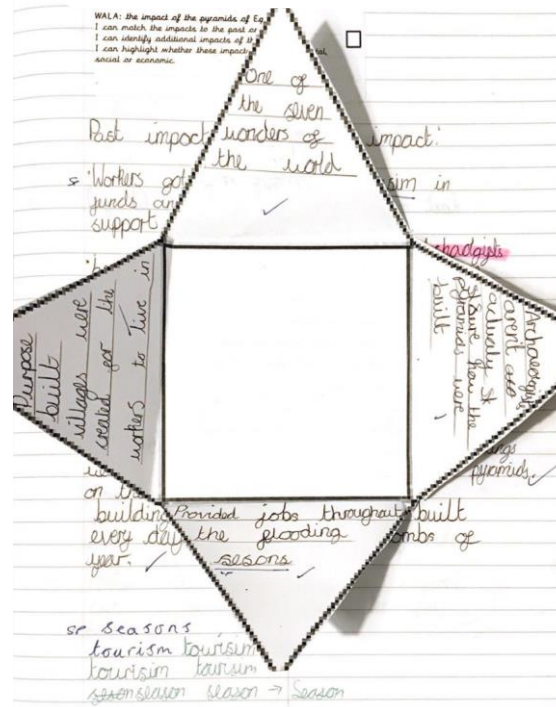 WALA: the impact of the pyramids of Eg
I can match the impacts to the past or
I can identify additional impacts of th
I can highlight whether these impact
social or economic.
One of
the seven
wonders of
the world
Past impact impact:
Workers got sim in
funds an
support
Purpose
built
villages were
created for the
workers to live in
Archaeologists
arent
actualy
sure how the
pyramids were
built
pyramids.
on th
building built
every day ombs of
year.
Provided jobs throughout
the flooding
sesons
sp seasons
tourism tourisim
tourisim tourism
season season → Season